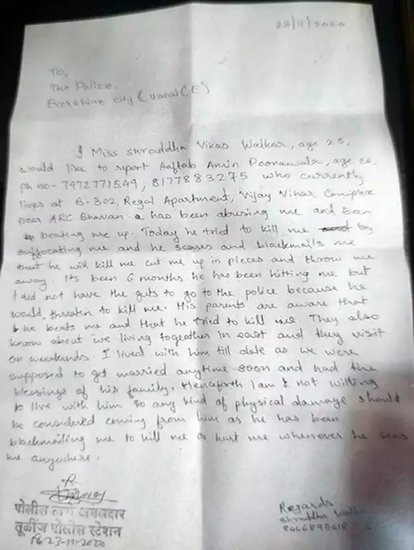 23/11/2020
To,
The Police,
Evershine city (Vasai (E)
I Miss Shraddha Vikas Walkar, age 25,
would like to report Aaftab Amin Poonawala, age 26,
ph no- 7972771549, 8177883275 who currently
lives at B-302, Regal Apartment, Vijay Vihar Complex
near ARC Bhavan has been abusing me and been
beating me up. Today he tried to kill me by
suffocating me and he scares and blackmails me
that he will kill me cut me up in pieces and throw me
away. Its been 6 months he has been hitting me but
I did not have the guts to go to the police because he
would threaten to kill me. His parents are aware that
he beats me and that he tried to kill me. They also
know about we living together in and they visit
on weekends. I lived with him till date as we were
supposed to get married anytime soon and had the
blessings of his family. Henceforth I am not willing
to live with him so any kind of physical damage should
be considered coming from him as he has been
blackmailing me to kill me or hurt me whenever he sees
me anywhere.
पोलीस ठाणे अंमलदार
तुळींज पोलीस स्टेशन
23-11-2020
Regards
Shraddha Walkar